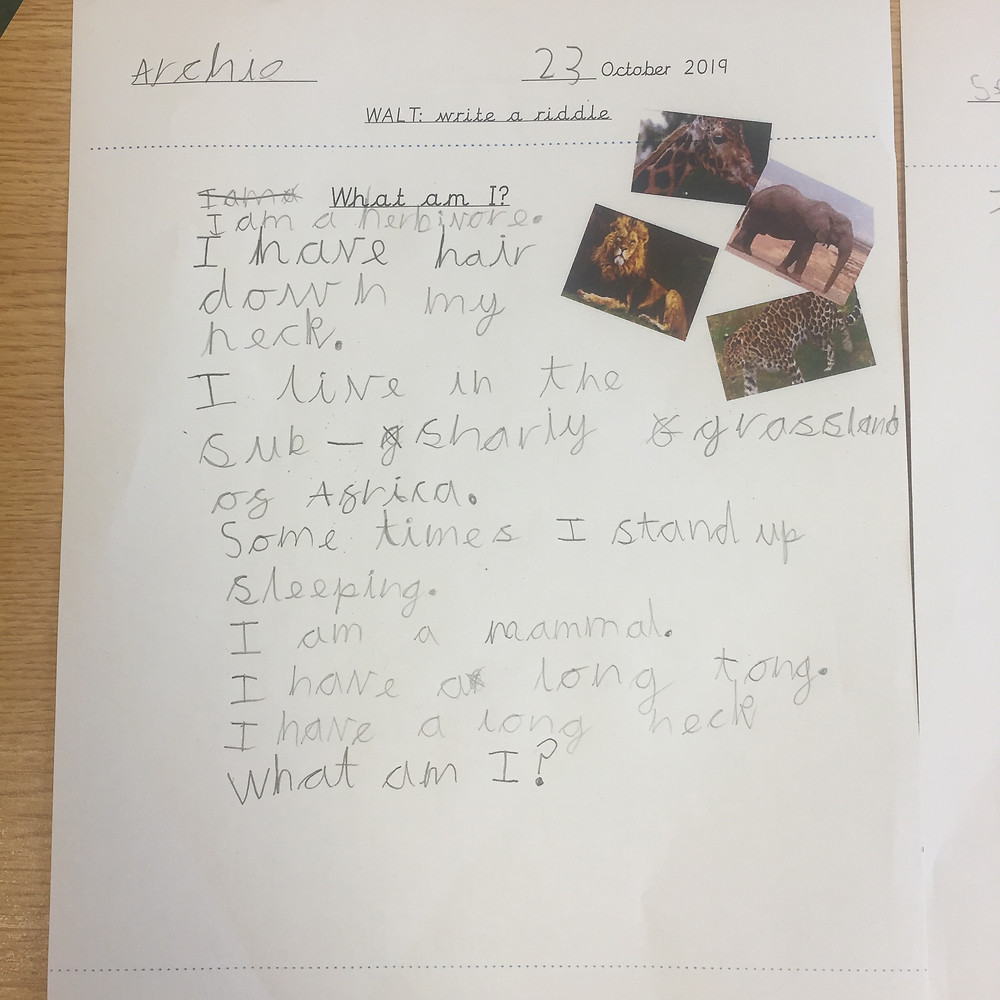 Archie
23 October 2019
WALT: write a riddle
I am a What am I?
I am a herbivore.
I have hair
down my
neck.
I live in the
sub - sharly grassland
og Agrica.
Some times I stand up
sleeping.
I am a mammal.
I have a long tong.
I have a long neck
What am I?